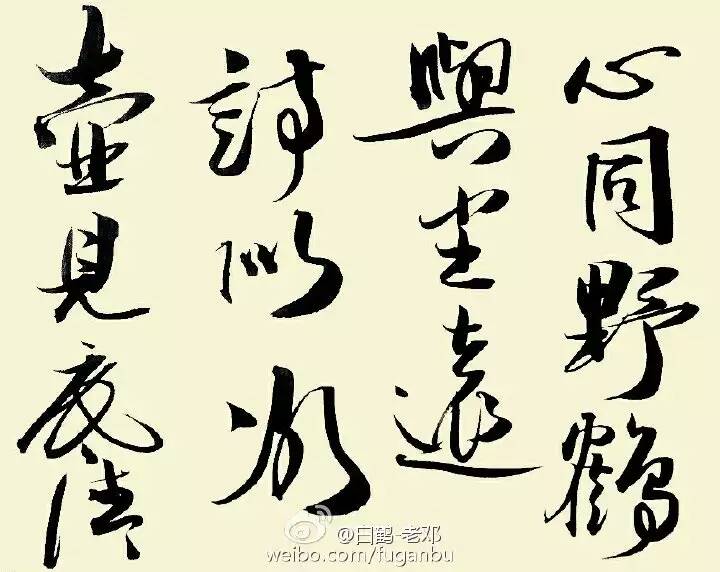 心同野鶴
與尘遠
詩似冰
壷見底清
@白鹤-老邓
weibo.com/fuganbu